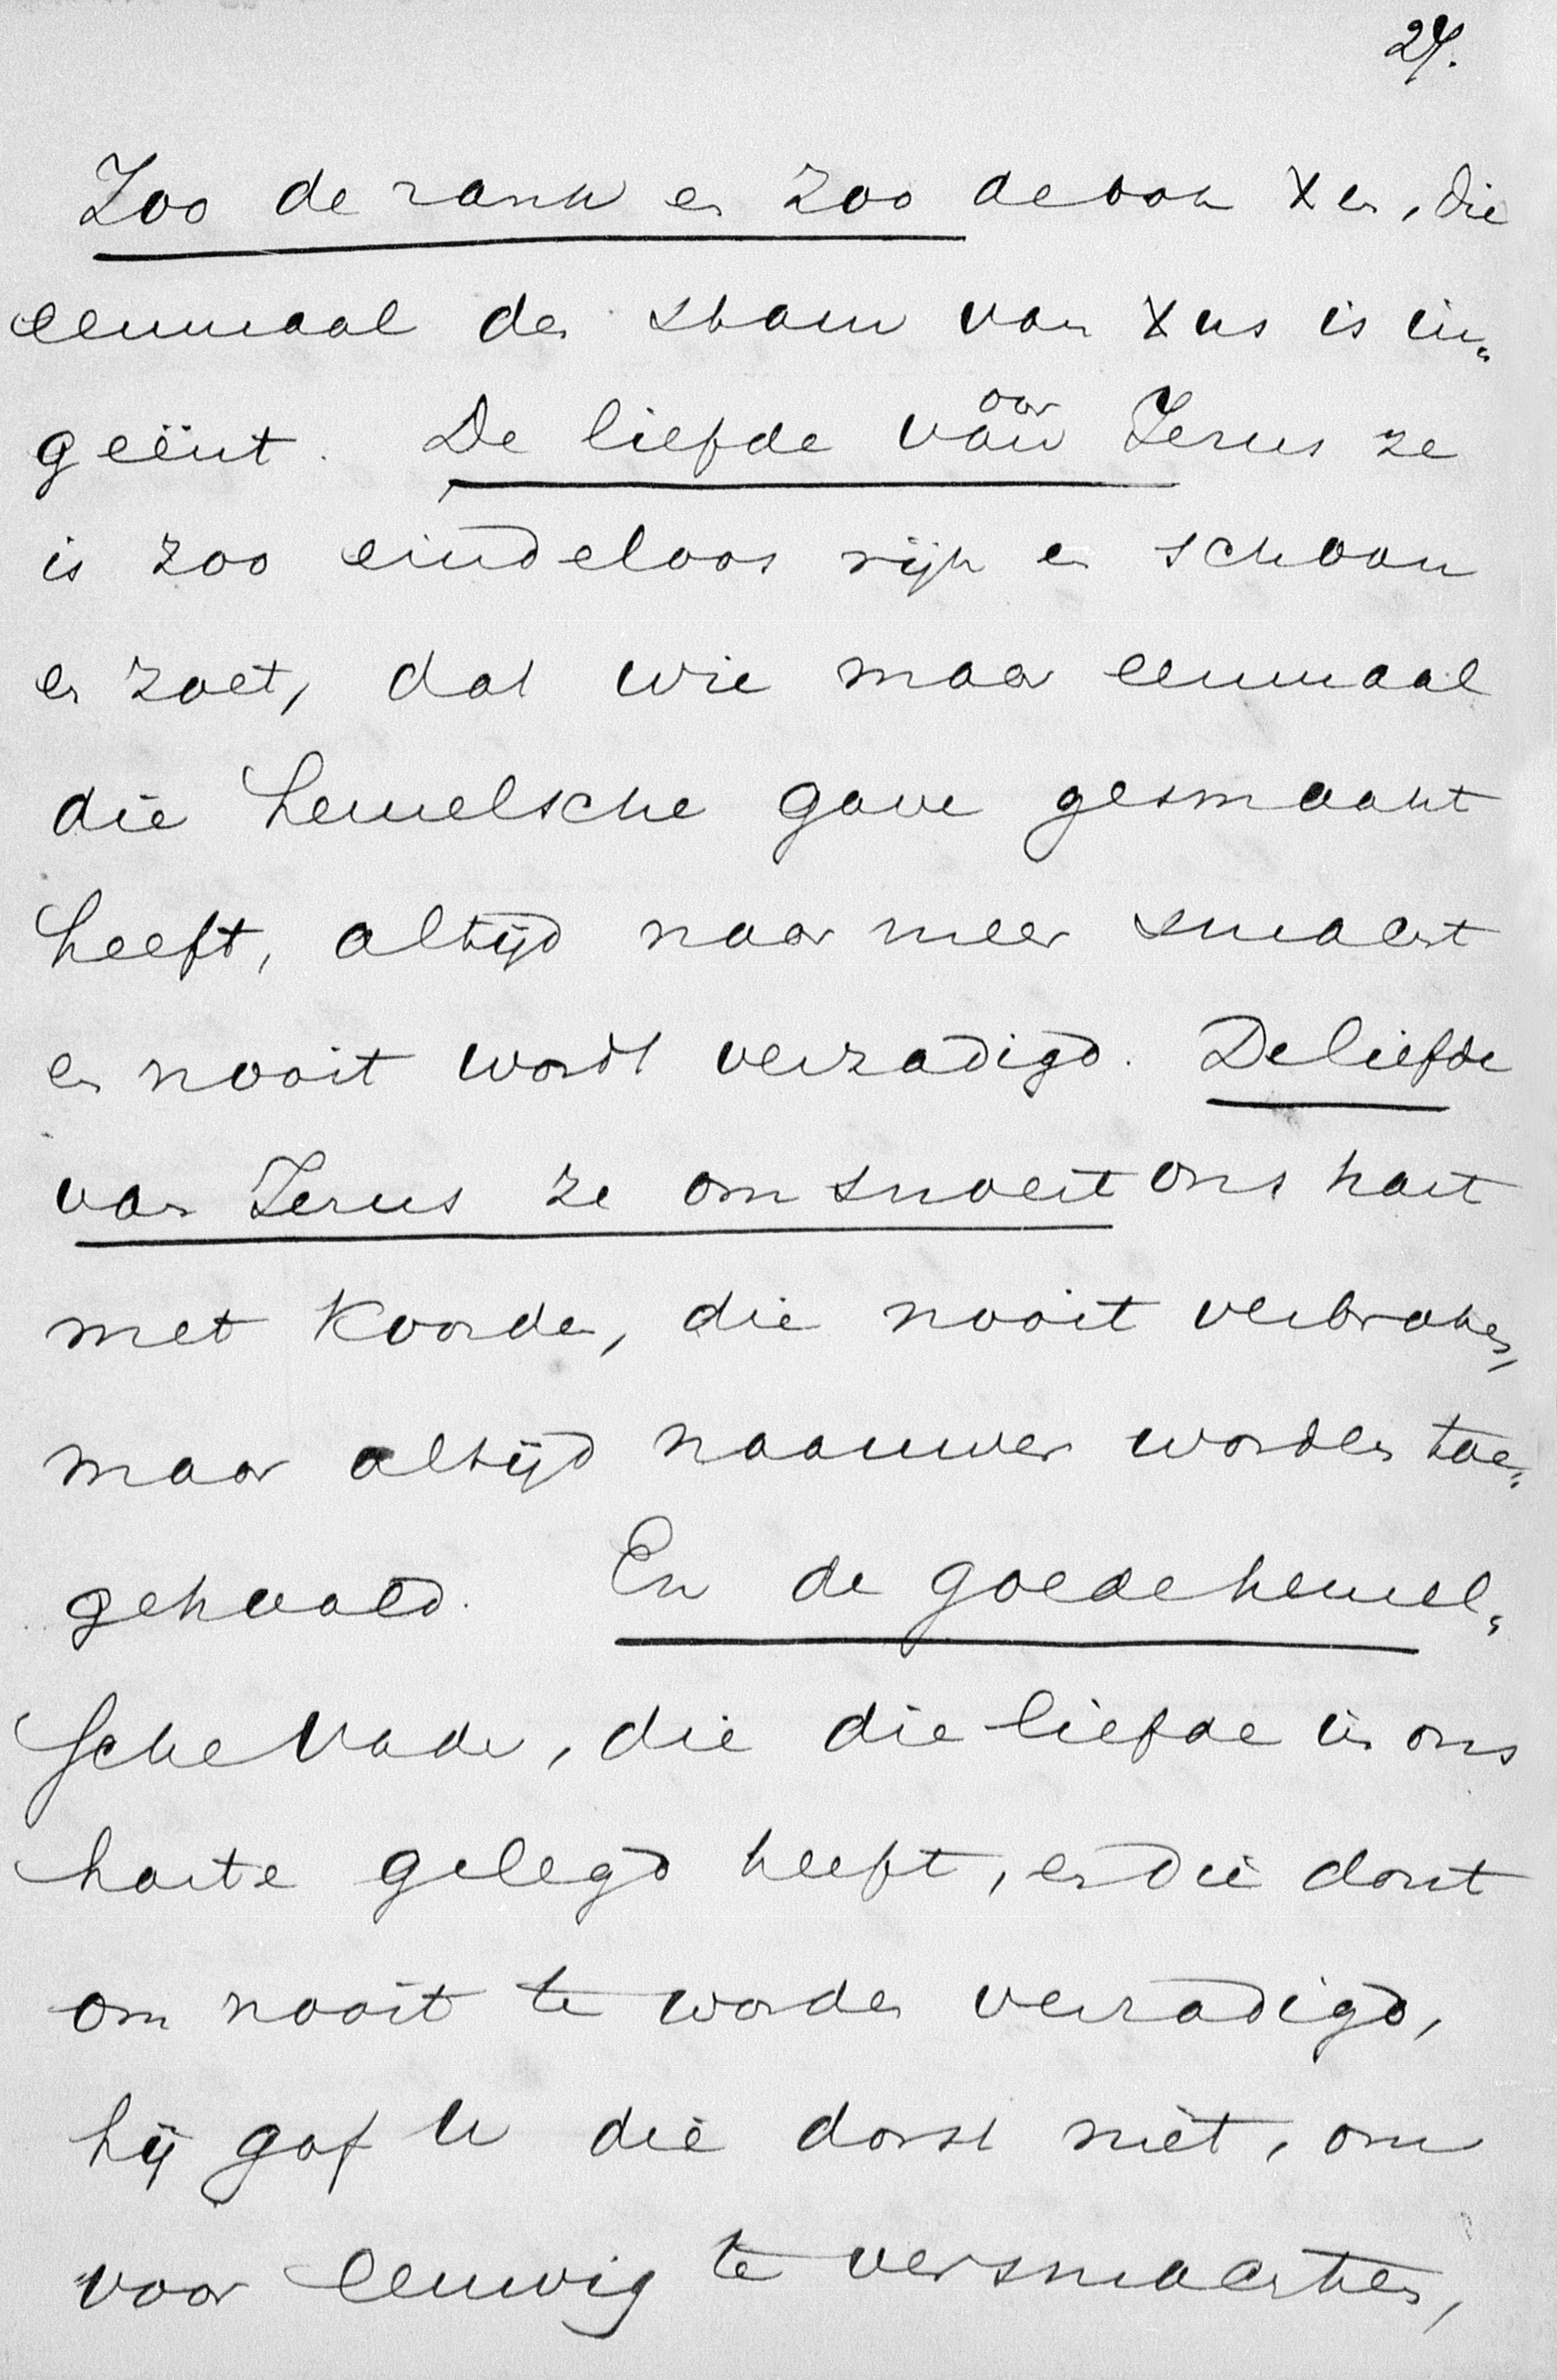 24.
Zoo de rank en zoo de ook Xen, die
eenmaal den stam van Xus is in„
geënt. De liefde voor Jezus ze
is zoo eindeloos rijk en schoon
en zoet, dat wie maar eenmaal
die hemelsche gave gesmaakt
heeft, altijd naar meer smacht
en nooit wordt verzadigd. De liefde
van Jezus ze omsnoert ons hart
met koorden, die nooit verbroken,
maar altijd naauwer worden toe„
gehaald. En de goede hemel„
sche Vader, die die liefde in ons
harte gelegd heeft, en die dorst
om nooit te worden verzadigd,
hij gaf U die dorst niet, om
voor eeuwig te versmachten,